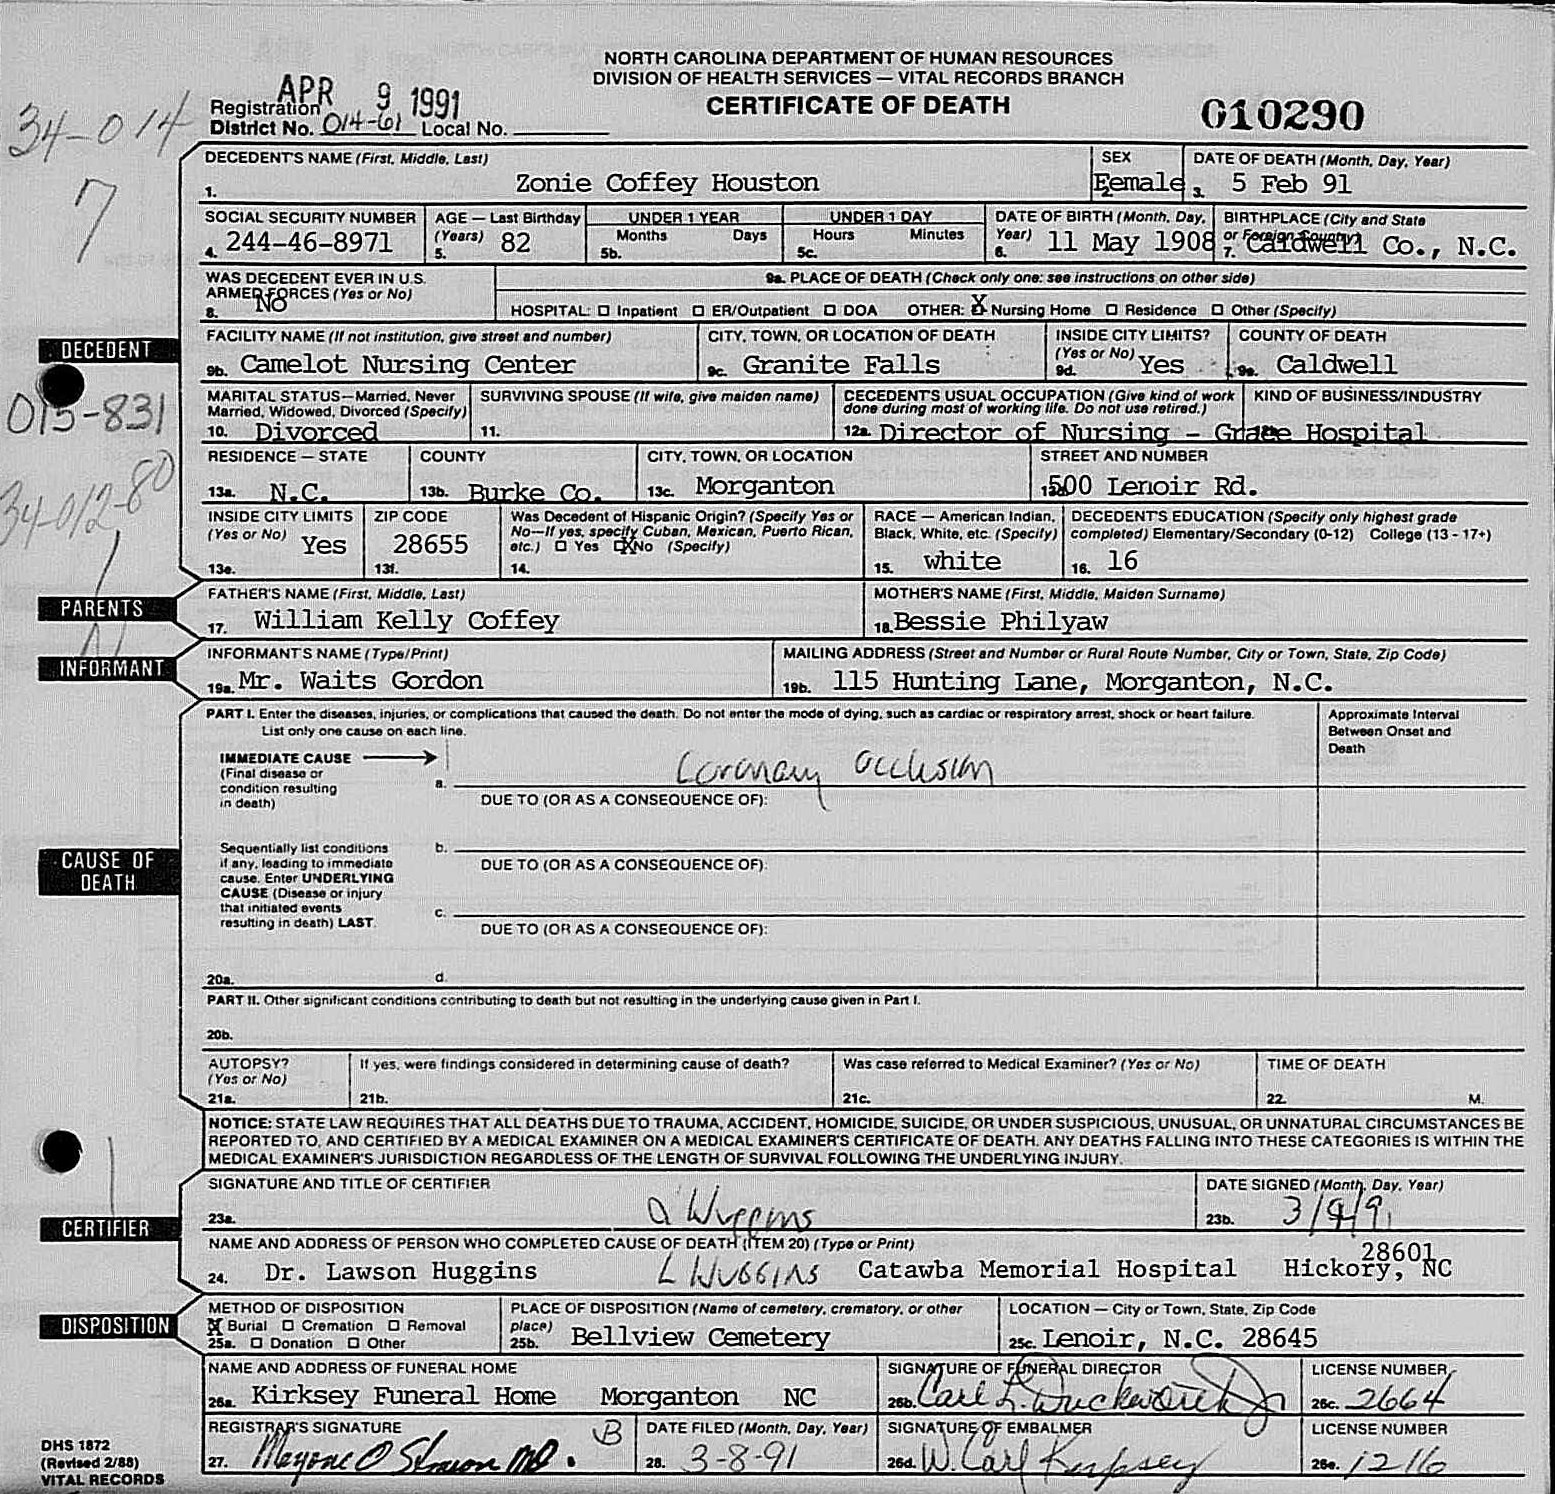 NORTH CAROLINA DEPARTMENT OF HUMAN RESOURCES
DIVISION OF HEALTH SERVICES — VITAL RECORDS BRANCH
CERTIFICATE OF DEATH
G10290
APR 9 1991
Registration
District No. 014-61 Local No.
34-014
7
DECEDENT'S NAME (First, Middle, Last)
1. Zonie Coffey Houston
SEX
2. Female
DATE OF DEATH (Month, Day, Year)
3. 5 Feb 91
SOCIAL SECURITY NUMBER
4. 244-46-8971
AGE — Last Birthday
(Years) 5. 82
UNDER 1 YEAR
Months Days
5b.
UNDER 1 DAY
Hours Minutes
5c.
DATE OF BIRTH (Month, Day,
Year) 6. 11 May 1908
BIRTHPLACE (City and State
or Foreign Country)
7. Caldwell Co., N.C.
WAS DECEDENT EVER IN U.S.
ARMED FORCES (Yes or No)
8. No
9a. PLACE OF DEATH (Check only one: see instructions on other side)
HOSPITAL: ☐ Inpatient ☐ ER/Outpatient ☐ DOA OTHER: ☒ Nursing Home ☐ Residence ☐ Other (Specify)
DECEDENT
FACILITY NAME (If not institution, give street and number)
9b. Camelot Nursing Center
CITY, TOWN, OR LOCATION OF DEATH
9c. Granite Falls
INSIDE CITY LIMITS?
(Yes or No)
9d. Yes
COUNTY OF DEATH
9e. Caldwell
015-831
MARITAL STATUS—Married, Never
Married, Widowed, Divorced (Specify)
10. Divorced
SURVIVING SPOUSE (If wife, give maiden name)
11.
DECEDENT'S USUAL OCCUPATION (Give kind of work
done during most of working life. Do not use retired.)
KIND OF BUSINESS/INDUSTRY
12a. Director of Nursing - Grace Hospital
34-012-80
RESIDENCE — STATE
13a. N.C.
COUNTY
13b. Burke Co.
CITY, TOWN, OR LOCATION
13c. Morganton
STREET AND NUMBER
13d. 500 Lenoir Rd.
INSIDE CITY LIMITS
(Yes or No)
13e. Yes
ZIP CODE
13f. 28655
Was Decedent of Hispanic Origin? (Specify Yes or
No—If yes, specify Cuban, Mexican, Puerto Rican,
etc.) ☐ Yes ☒ No (Specify)
14.
RACE — American Indian,
Black, White, etc. (Specify)
15. white
DECEDENT'S EDUCATION (Specify only highest grade
completed) Elementary/Secondary (0-12) College (13 - 17+)
16. 16
PARENTS
FATHER'S NAME (First, Middle, Last)
17. William Kelly Coffey
MOTHER'S NAME (First, Middle, Maiden Surname)
18. Bessie Philyaw
INFORMANT
INFORMANT'S NAME (Type/Print)
19a. Mr. Waits Gordon
MAILING ADDRESS (Street and Number or Rural Route Number, City or Town, State, Zip Code)
19b. 115 Hunting Lane, Morganton, N.C.
PART I. Enter the diseases, injuries, or complications that caused the death. Do not enter the mode of dying, such as cardiac or respiratory arrest, shock or heart failure.
List only one cause on each line.
Approximate Interval
Between Onset and
Death
IMMEDIATE CAUSE
(Final disease or
condition resulting
in death)
a. Coronary Occlusion
DUE TO (OR AS A CONSEQUENCE OF):
CAUSE OF
DEATH
Sequentially list conditions
if any, leading to immediate
cause. Enter UNDERLYING
CAUSE (Disease or injury
that initiated events
resulting in death) LAST.
b.
DUE TO (OR AS A CONSEQUENCE OF):
c.
DUE TO (OR AS A CONSEQUENCE OF):
20a. d.
PART II. Other significant conditions contributing to death but not resulting in the underlying cause given in Part I.
20b.
AUTOPSY?
(Yes or No)
21a.
If yes, were findings considered in determining cause of death?
21b.
Was case referred to Medical Examiner? (Yes or No)
21c.
TIME OF DEATH
22. M.
NOTICE: STATE LAW REQUIRES THAT ALL DEATHS DUE TO TRAUMA, ACCIDENT, HOMICIDE, SUICIDE, OR UNDER SUSPICIOUS, UNUSUAL, OR UNNATURAL CIRCUMSTANCES BE
REPORTED TO, AND CERTIFIED BY A MEDICAL EXAMINER ON A MEDICAL EXAMINER'S CERTIFICATE OF DEATH. ANY DEATHS FALLING INTO THESE CATEGORIES IS WITHIN THE
MEDICAL EXAMINER'S JURISDICTION REGARDLESS OF THE LENGTH OF SURVIVAL FOLLOWING THE UNDERLYING INJURY.
CERTIFIER
SIGNATURE AND TITLE OF CERTIFIER
23a. Huggins
DATE SIGNED (Month, Day, Year)
23b. 3/4/91
NAME AND ADDRESS OF PERSON WHO COMPLETED CAUSE OF DEATH (ITEM 20) (Type or Print)
28601
24. Dr. Lawson Huggins L HUGGINS Catawba Memorial Hospital Hickory, NC
DISPOSITION
METHOD OF DISPOSITION
☒ Burial ☐ Cremation ☐ Removal
25a. ☐ Donation ☐ Other
PLACE OF DISPOSITION (Name of cemetery, crematory, or other
place)
25b. Bellview Cemetery
LOCATION — City or Town, State, Zip Code
25c. Lenoir, N.C. 28645
NAME AND ADDRESS OF FUNERAL HOME
26a. Kirksey Funeral Home Morganton NC
SIGNATURE OF FUNERAL DIRECTOR
26b. Carl L. Duckworth Jr
LICENSE NUMBER
26c. 2664
REGISTRAR'S SIGNATURE
27. MD. B
DATE FILED (Month, Day, Year)
28. 3-8-91
SIGNATURE OF EMBALMER
26d. W. Carl
LICENSE NUMBER
26e. 1216
DHS 1872
(Revised 2/88)
VITAL RECORDS